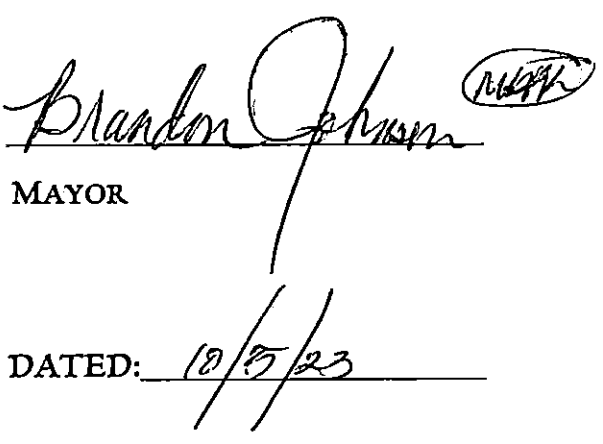 Brandon Johnson
MAYOR
DATED: 10/5/23